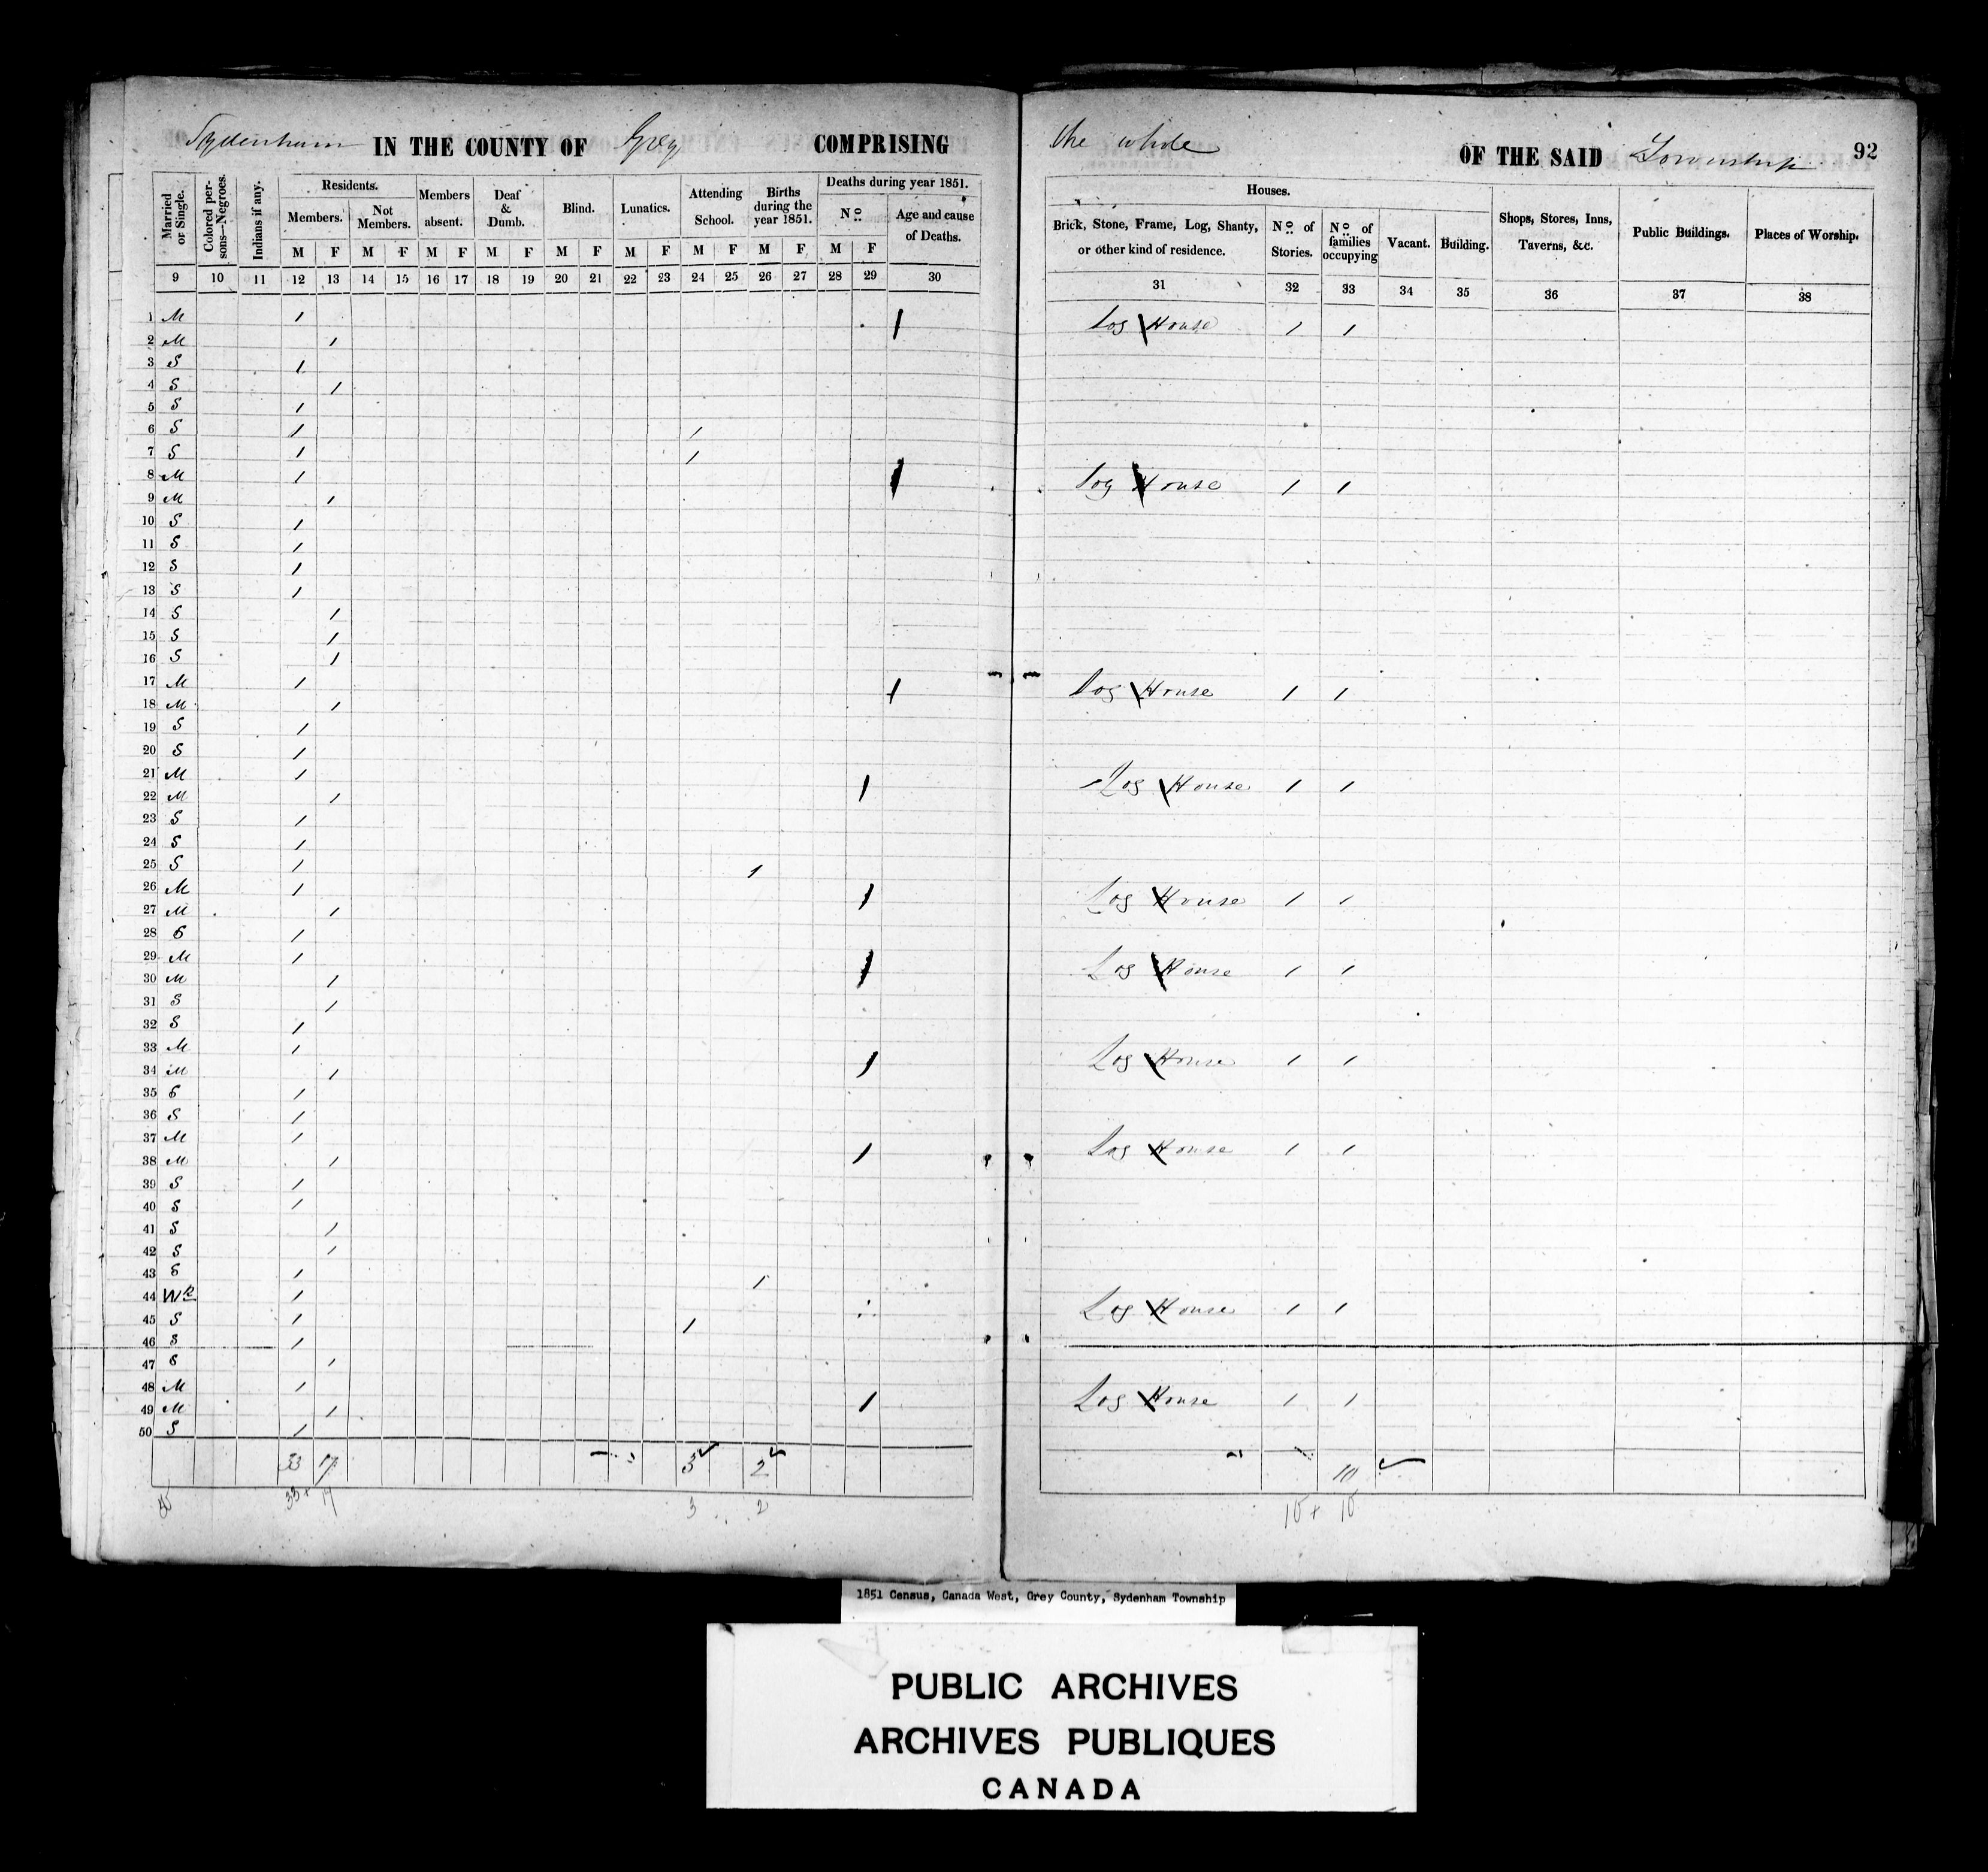 Sydenham IN THE COUNTY OF Grey COMPRISING the whole OF THE SAID Township 92
Married or Single. Colored persons—Negroes. Indians if any. Residents. Members absent. Deaf & Dumb. Blind. Lunatics. Attending School. Births during the year 1851. Deaths during year 1851.
Members. Not Members. No Age and cause of Deaths.
M F M F M F M F M F M F M F M F M F
9 10 11 12 13 14 15 16 17 18 19 20 21 22 23 24 25 26 27 28 29 30
Houses. Shops, Stores, Inns, Taverns, &c. Public Buildings. Places of Worship.
Brick, Stone, Frame, Log, Shanty, or other kind of residence. No of Stories. No of families occupying Vacant. Building.
31 32 33 34 35 36 37 38
1 M 1 Log House 1 1
2 M 1
3 S 1
4 S 1
5 S 1
6 S 1 1
7 S 1 1
8 M 1 Log House 1 1
9 M 1
10 S 1
11 S 1
12 S 1
13 S 1
14 S 1
15 S 1
16 S 1
17 M 1 Log House 1 1
18 M 1
19 S 1
20 S 1
21 M 1 Log House 1 1
22 M 1
23 S 1
24 S 1
25 S 1 1
26 M 1 Log House 1 1
27 M 1
28 S 1
29 M 1 Log House 1 1
30 M 1
31 S 1
32 S 1
33 M 1 Log House 1 1
34 M 1
35 S 1
36 S 1
37 M 1 Log House 1 1
38 M 1
39 S 1
40 S 1
41 S 1
42 S 1
43 S 1 1
44 Wr 1 Log House 1 1
45 S 1 1
46 S 1
47 S 1
48 M 1 Log House 1 1
49 M 1
50 S 1
33 17 3 2 10
33 + 17 3 2 10 + 10
1851 Census, Canada West, Grey County, Sydenham Township
PUBLIC ARCHIVES
ARCHIVES PUBLIQUES
CANADA